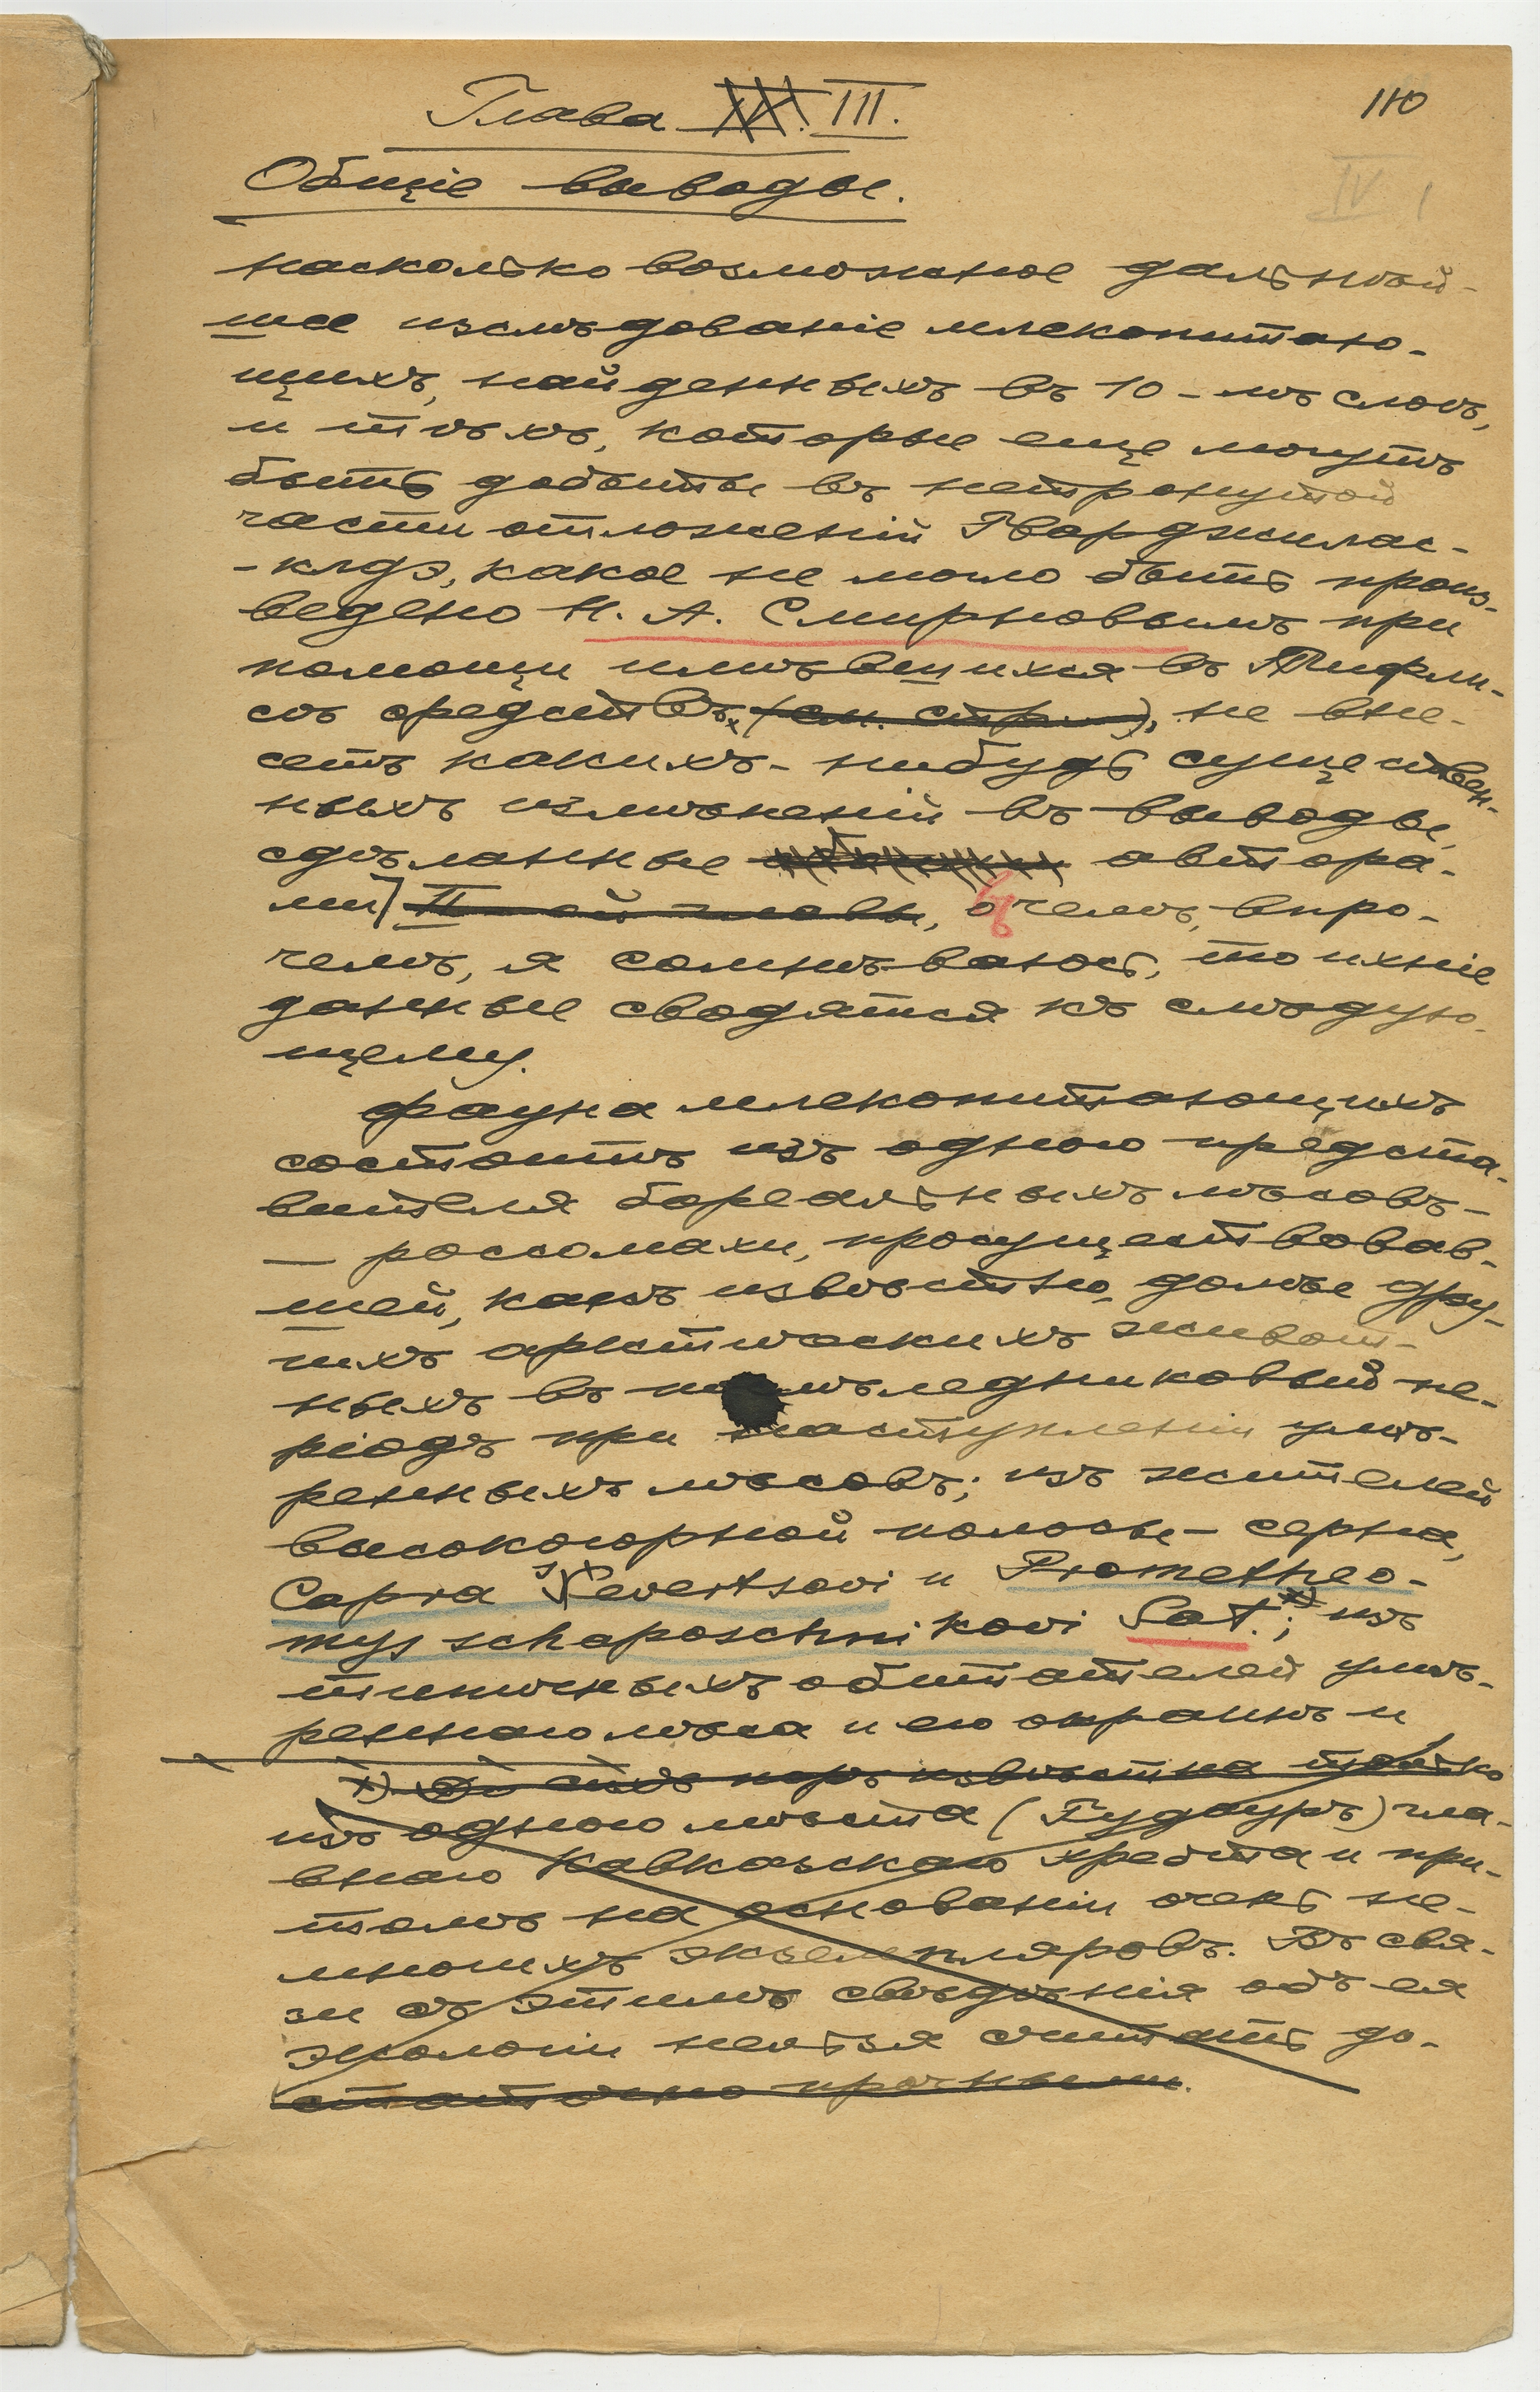 110
Глава III.
IV 1
Общіе выводы.
насколько возможное дальнѣй-
шее изслѣдованіе млекопитаю-
щихъ, найденныхъ въ 10-мъ слоѣ,
и тѣхъ, которые еще могутъ
быть добыты въ нетронутой
части отложеній Гварджилас-
-клдэ, какое не могло быть произ-
ведено Н. А. Смирновымъ при
помощи имѣвшихся въ Тифли-
сѣ средствъ x (см. стр. ), не вне-
сетъ какихъ-нибудь существен-
ныхъ измѣненій въ выводы,
сдѣланные автора-
ми] II-ой главы, о чемъ, впро-
чемъ, я сомнѣваюсь, то ихніе
данные сводятся къ слѣдую-
щему.
фауна млекопитающихъ
состоитъ изъ одного предста-
вителя бореальныхъ лѣсовъ-
— россомахи, просуществовав-
шей, какъ извѣстно, долѣе дру-
гихъ арктическихъ живот-
ныхъ въ послѣледниковый пе-
ріодъ при наступленіи умѣ-
ренныхъ лѣсовъ; изъ жителей
высокогорной полосы - серна,
Capra Severtsovi и Prometheo-
mys schaposchnikovi Sat. x); изъ
типичныхъ обитателей умѣ-
реннаго лѣса и его окраинъ и
x) До сихъ поръ извѣстна только
изъ одного мѣста (Гудауръ) гла-
внаго Кавказскаго хребта и при-
томъ на основаніи очень не-
многихъ экземпляровъ. Въ свя-
зи съ этимъ свѣдѣнія объ ея
экологіи нельзя считать до-
статочно прочными.